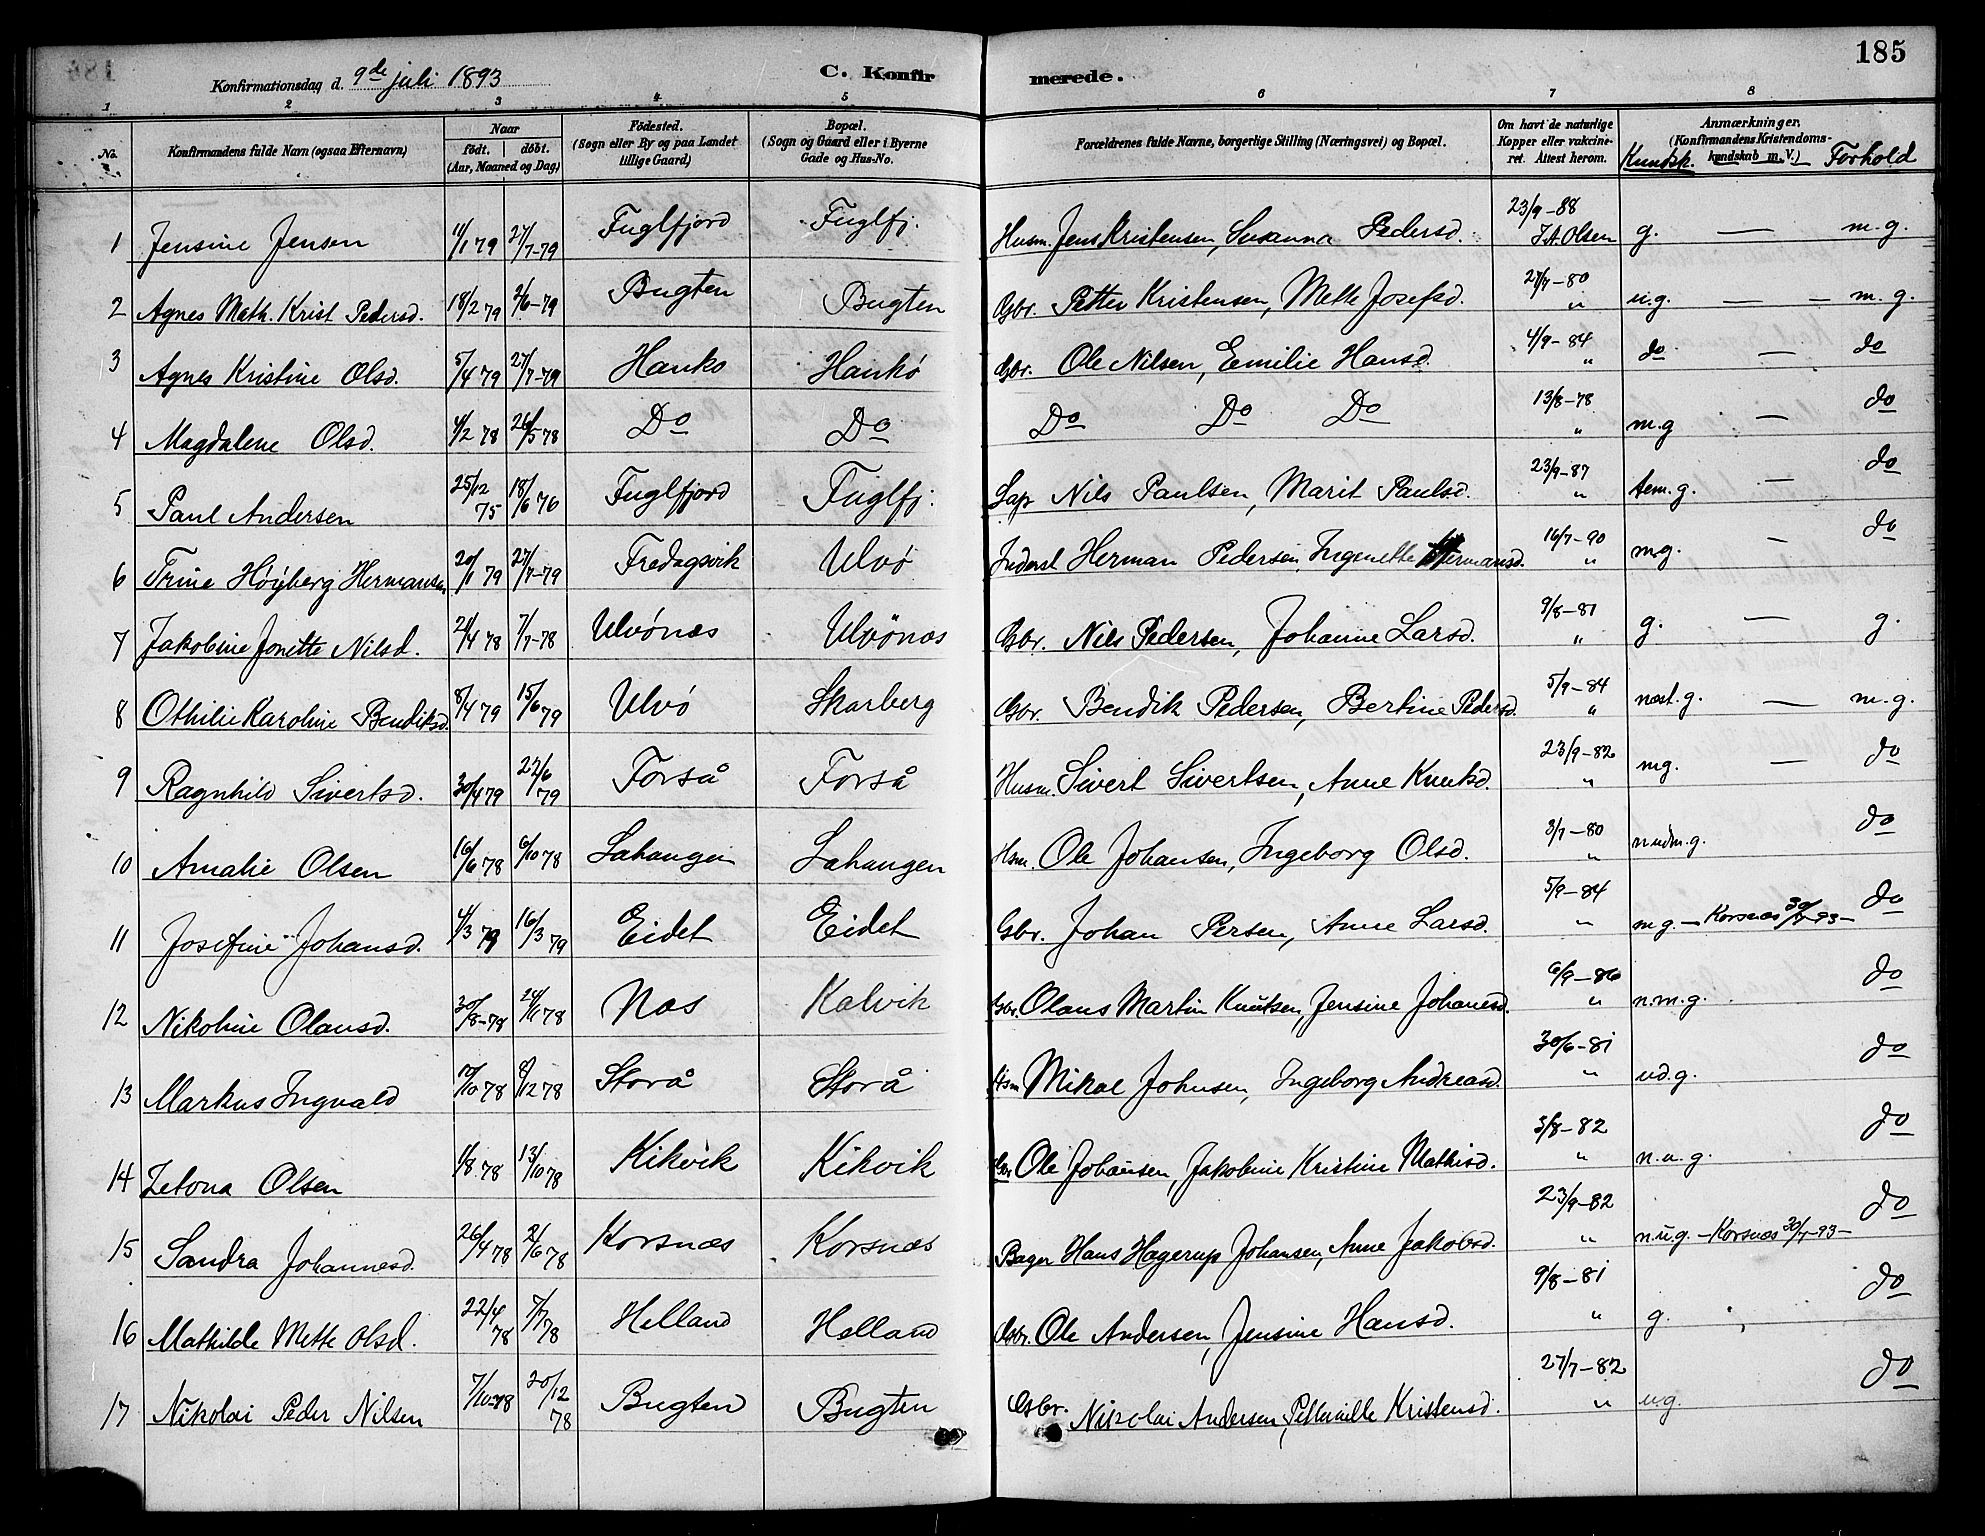 185
Konfirmationsdag d. 9de juli 1893 C. Konfirmerede.
1 2 3 4 5 6 7 8
No. Konfirmandens fulde Navn (ogsaa Efternavn) Naar født. døbt. (Aar, Maaned og Dag) Fødested. (Sogn eller By og paa Landet tillige Gaard) Bopæl. (Sogn og Gaard eller i Byerne Gade og Hus-No. Forældrenes fulde Navne, borgerlige Stilling (Næringsvei) og Bopæl. Om havt de naturlige Kopper eller vakcineret. Attest herom. Anmærkninger, (Konfirmandens Kristendomskundskab m.V.) Kundsk. Forhold
1 Jensine Jensen 11/1 79 27/7-79 Fuglfjord Fuglfj. Husm. Jens Kristensen, Susanna Pedersd. 23/9-88 J.A. Olsen g. — m.g.
2 Agnes Math. Krist Pedersd. 18/2 79 2/6-79 Bugten Bugten Gbr. Petter Kristensen, Mette Josefsd. 27/7-80 " u.g. — — m.g.
3 Agnes Kristine Olsd. 5/4 79 27/7-79 Hanko Hankø Gbr. Ole Nilsen, Emilie Hansd. 4/9-84 " do — do
4 Magdalene Olsd. 4/2 78 26/5 78 Do Do Do Do Do 13/8-78 " m.g — do
5 Paul Andersen 25/12 75 18/6 76 Fuglfjord Fuglfj. Lap Nils Paulsen, Marit Paulsd. 23/9-87 " tem.g. — do
6 Trine Høyberg Hermansen 20/1 79 27/7-79 Fredagsvik Ulvø Inderst Herman Pedersen, Ingenette Hermansd. 16/7-90 " mg. — do
7 Jakobine Jonette Nilsd. 21/4 78 7/7-78 Ulvønæs Ulvönæs Gbr. Nils Pedersen, Johanne Larsd. 9/8-81 " g. — g.
8 Othilie Karoline Bendiksd. 8/4 79 15/6 79 Ulvø Skarberg Gbr. Bendik Pedersen, Bertine Pedersd. 5/9-84 " næst.g. — m.g.
9 Ragnhild Sivertsd. 30/4 79 22/6 79 Forså Forså Husm. Sivert Sivertsen, Anne Knutsd. 23/9-82 " mg. — do
10 Amalie Olsen 16/6 78 6/10 78 Lahangen Lahangen Hsm. Ole Johansen, Ingeborg Olsd. 3/7-80 " n.udm.g. do
11 Josefine Johansd. 4/3 79 16/3 79 Eidet Eidet Gbr. Johan Persen, Anne Larsd. 5/9-84 " m.g. — Korsnæs 30/7-93 — do
12 Nikoline Olausd. 30/8-78 24/11 78 Næs Kalvik Gbr. Olaus Martin Knutsen, Jensine Johanesd. 6/9-86 " n.m.g. do
13 Markus Ingvald 10/10 78 8/12 78 Storå Storå Hsm Mikal Johnsen, Ingeborg Andreasd. 30/6-81 " ud.g. do
14 Zetona Olsen 1/8 78 13/10 78 Kikvik Kikvik Gbr. Ole Johansen, Jakobine Kristine Mathisd. 3/8-82 " n.u.g. do
15 Sandra Johannesd. 26/4 78 2/6 78 Korsnæs Korsnæs Bager Hans Hagerup Johansen, Anne Jakobsd. 23/9-82 " n.u.g. — Korsnæs 30/7-93 — do
16 Mathilde Mette Olsd. 22/4 78 7/7 78 Helland Helland Gsbr. Ole Andersen, Jensine Hansd. 9/8-81 " g. do
17 Nikolai Peder Nilsen 7/10-78 20/12 78 Bugten Bugten Gsbr. Nikolai Andersen, Kristensd. 27/7-82 " ug. do